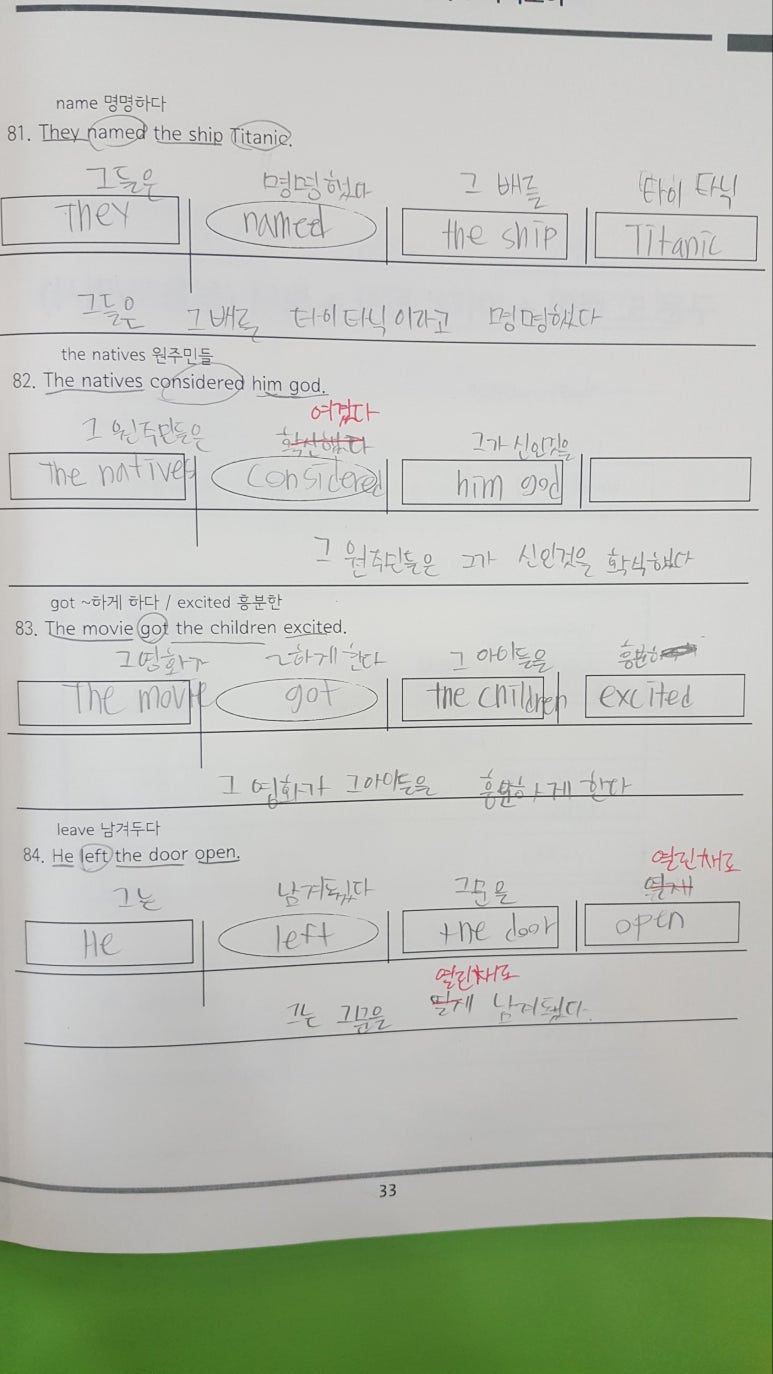 name 명명하다
81. They named the ship Titanic.
그들은 명명했다 그 배를 타이타닉
They named the ship Titanic
그들은 그배를 타이타닉이라고 명명했다
the natives 원주민들
82. The natives considered him god.
여겼다
그 원주민들은 그가 신인것을
The natives considered him god
그 원주민들은 그가 신인것을 확식했다
got ~하게 하다 / excited 흥분한
83. The movie got the children excited.
그영화가 ~하게 한다 그 아이들을 흥분하
The movie got the children excited
그 영화가 그아이들을 흥분하게 한다
leave 남겨두다
84. He left the door open.
열린채로
그는 남겨뒀다 그문을
He left the door open
열린채로
그는 그문을 남겨뒀다.
33